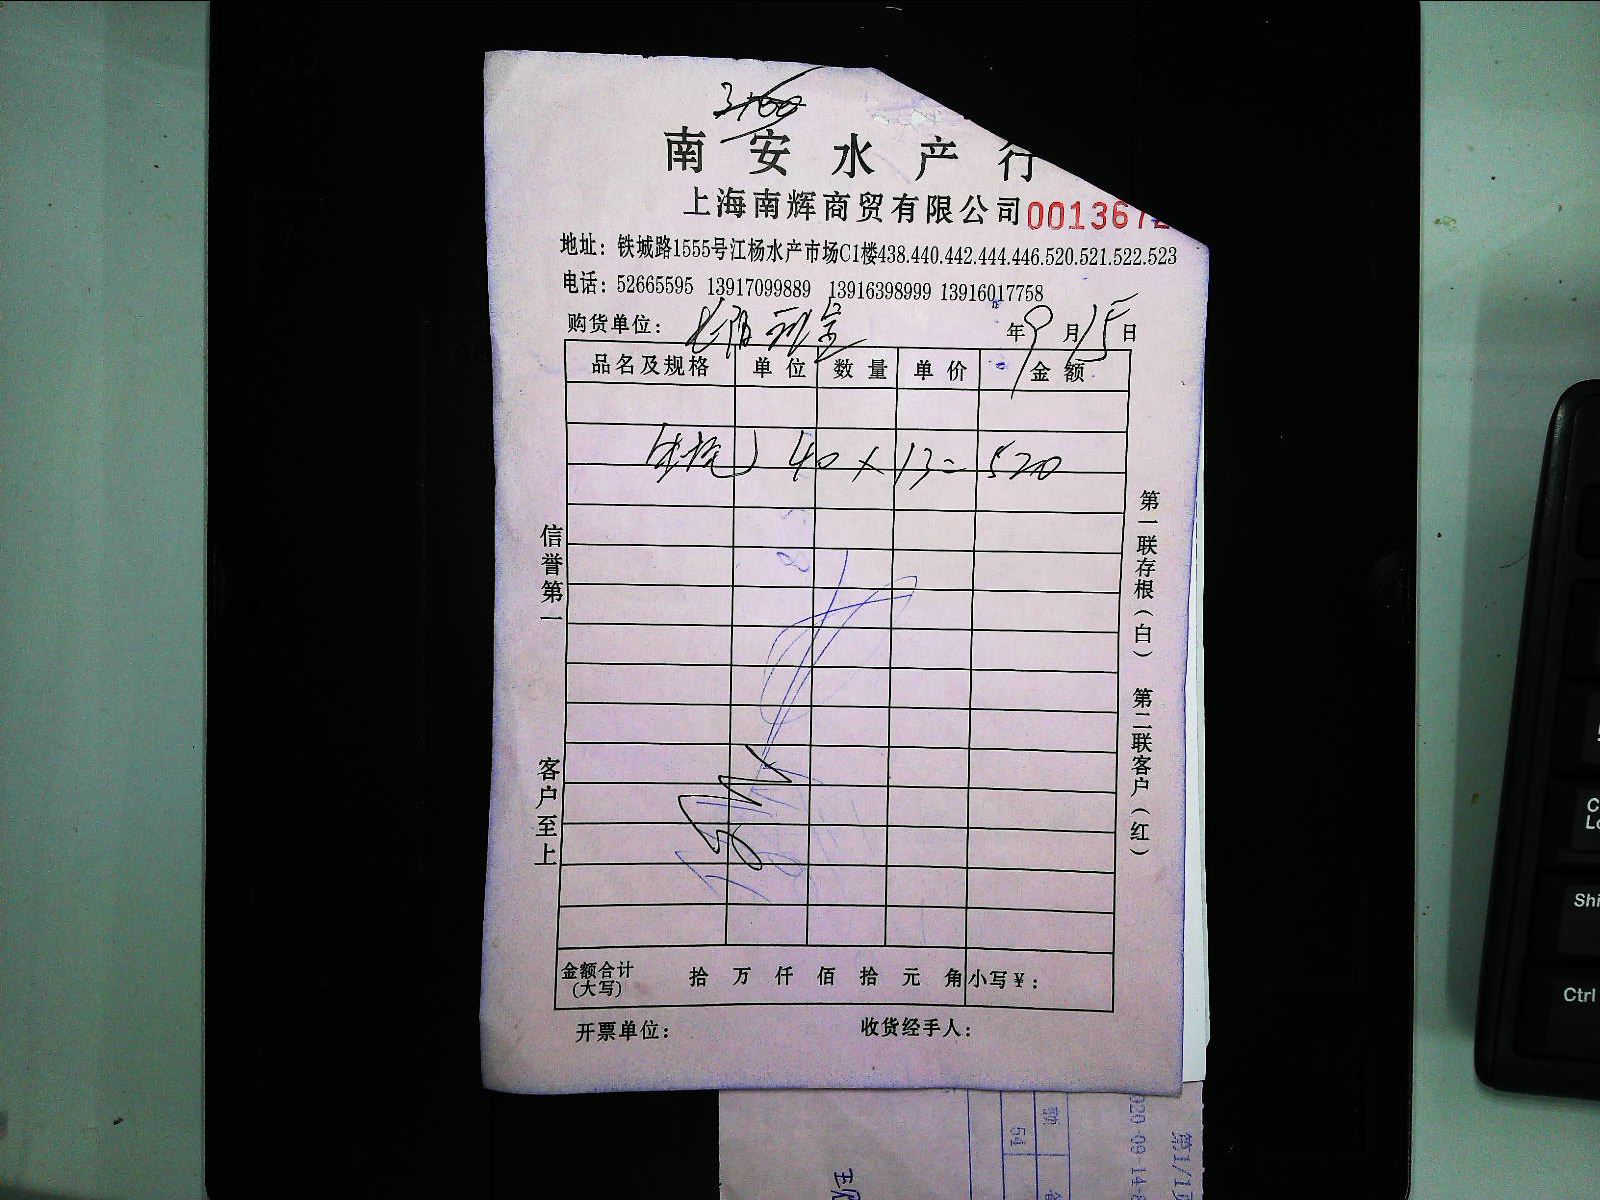 南安水产行
上海南辉商贸有限公司 001367
地址：铁城路1555号江杨水产市场C1楼438.440.442.444.446.520.521.522.523
电话：52665595 13917099889 13916398999 13916017758
购货单位： 年9月15日
品名及规格 单位 数量 单价 金额
40×13=520
信誉第一
客户至上
第一联存根（白） 第二联客户（红）
金额合计(大写) 拾 万 仟 佰 拾 元 角 小写￥：
开票单位： 收货经手人：
54
Ctrl